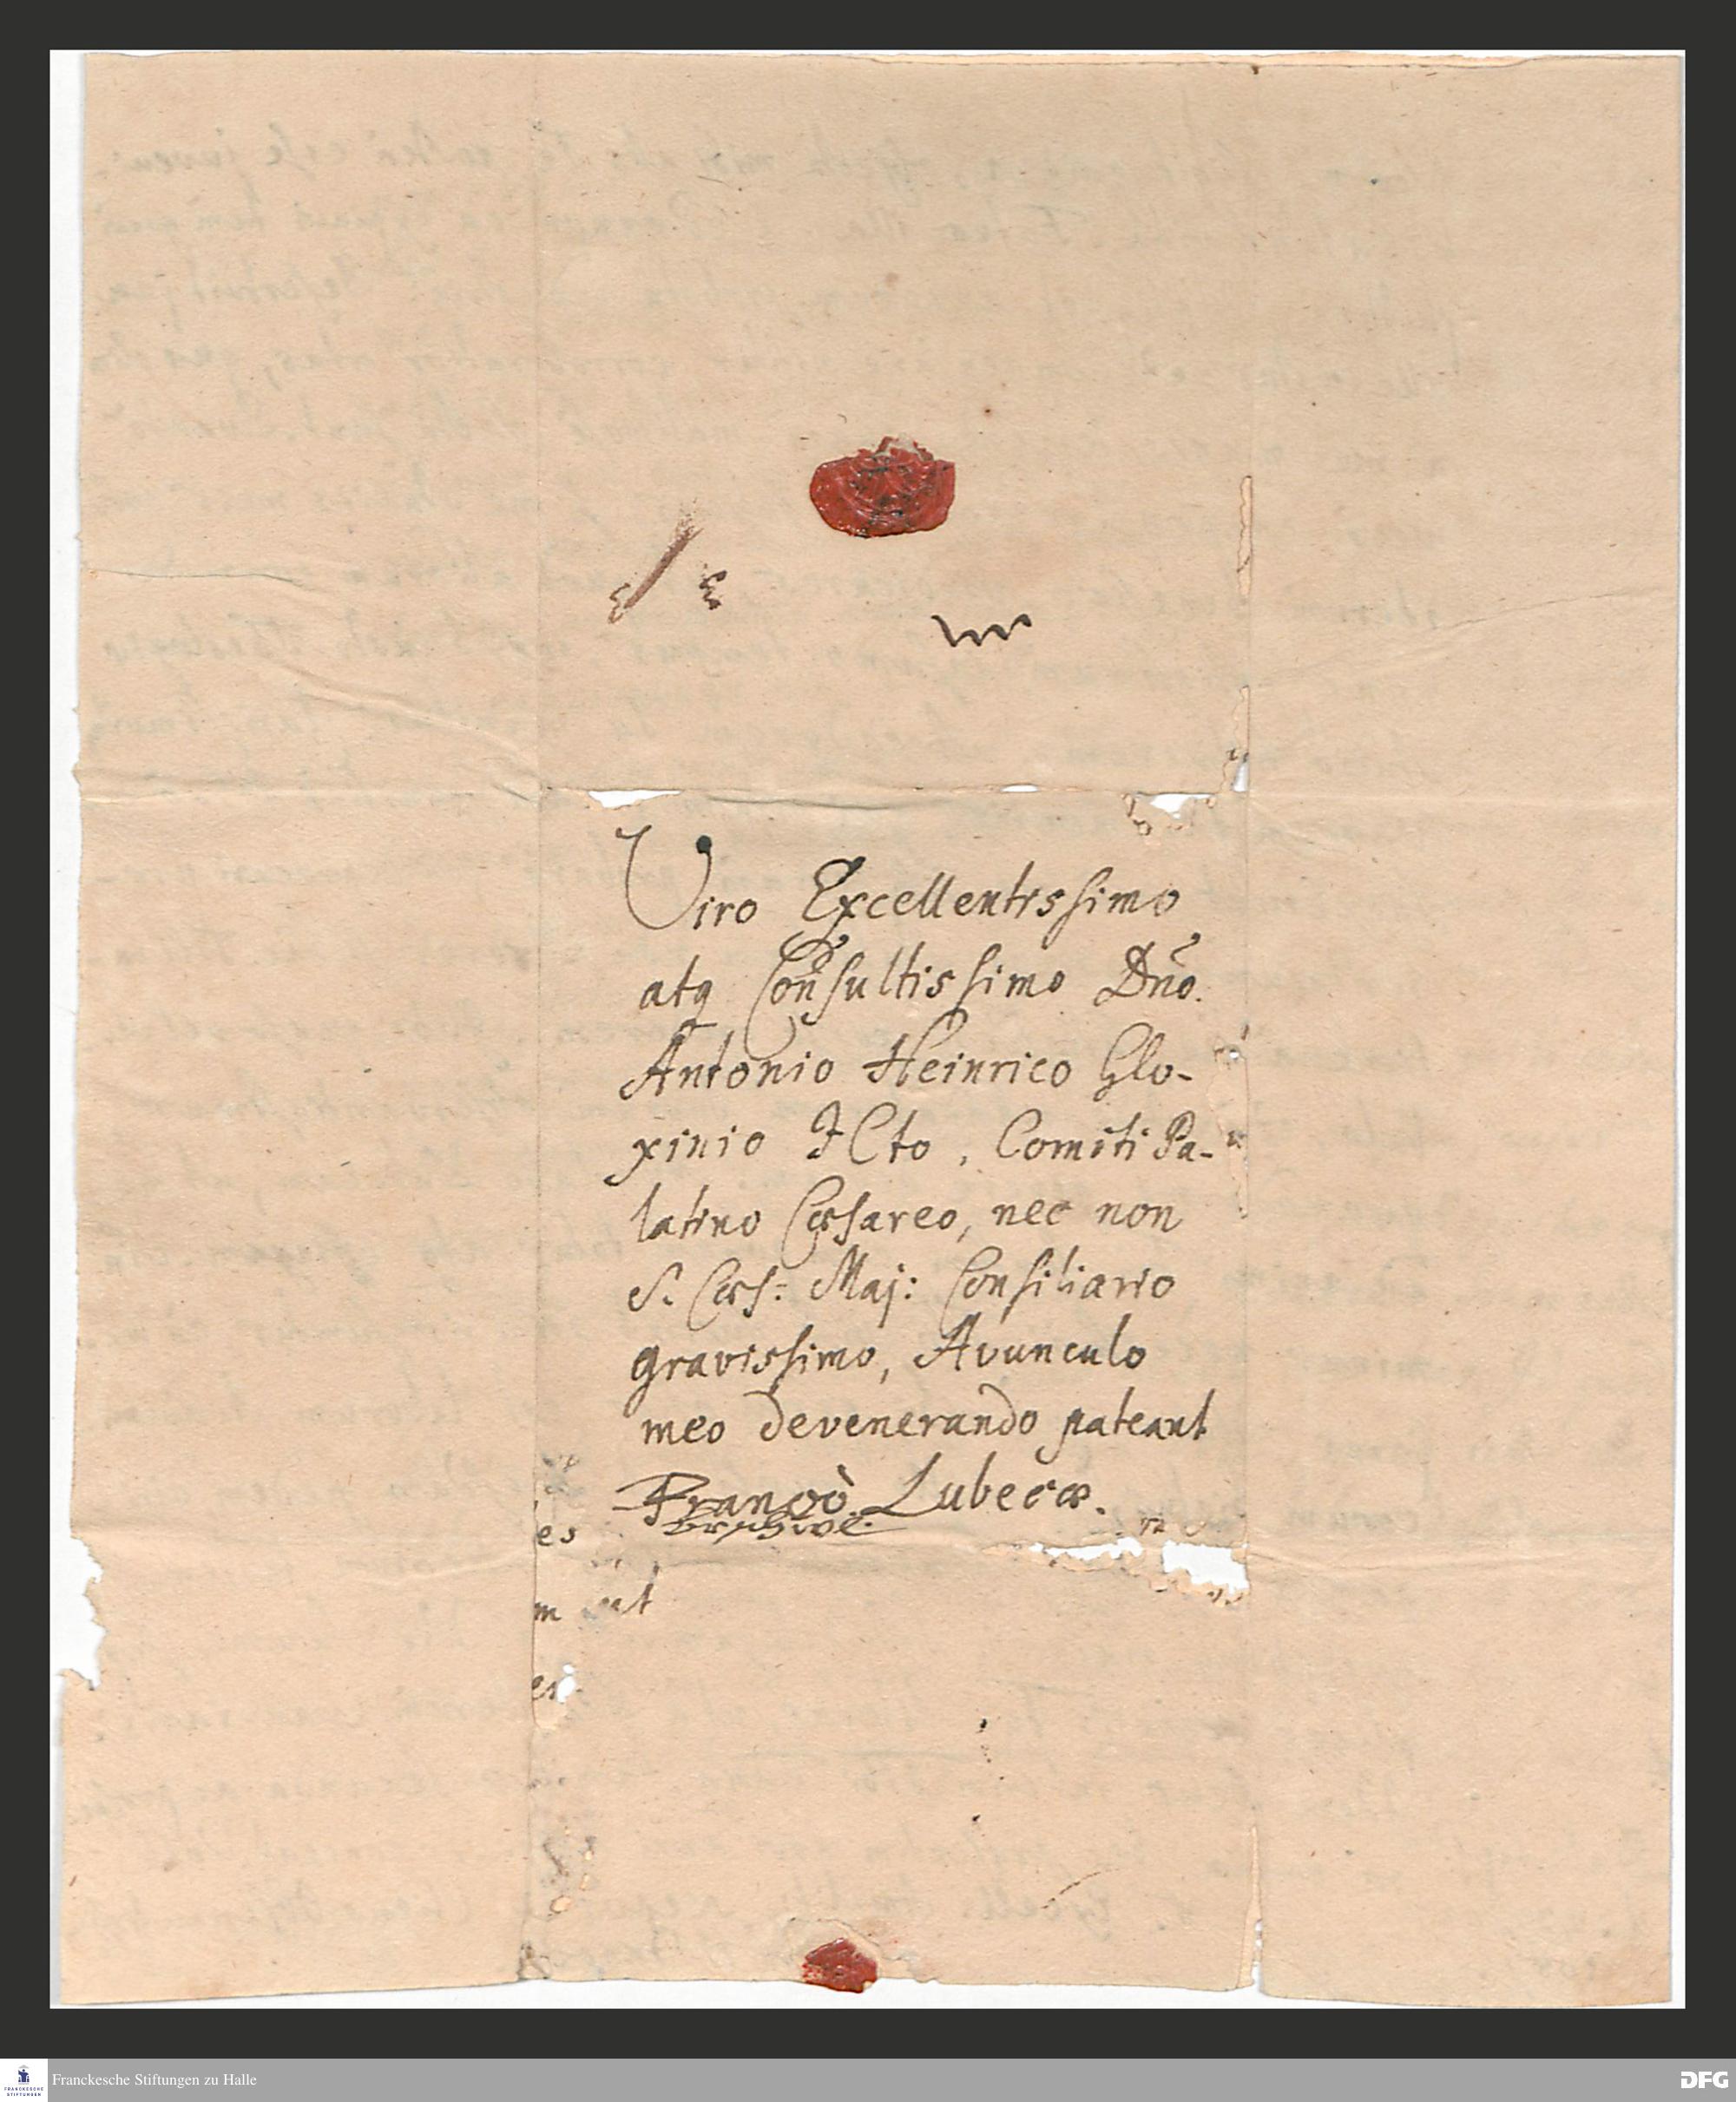 Viro Excellentissimo
atq Consultissimo Dño.
Antonio Heinrico Glo-
xinio JCto, Comiti Pa-
latino Cæsareo, nec non
S. Cæs: Maj: Consiliario
gravissimo, Avunculo
meo devenerando pateant
Francò. Lubecæ.
es
m ut
Franckesche Stiftungen zu Halle
DFG
FRANCKESCHE
STIFTUNGEN